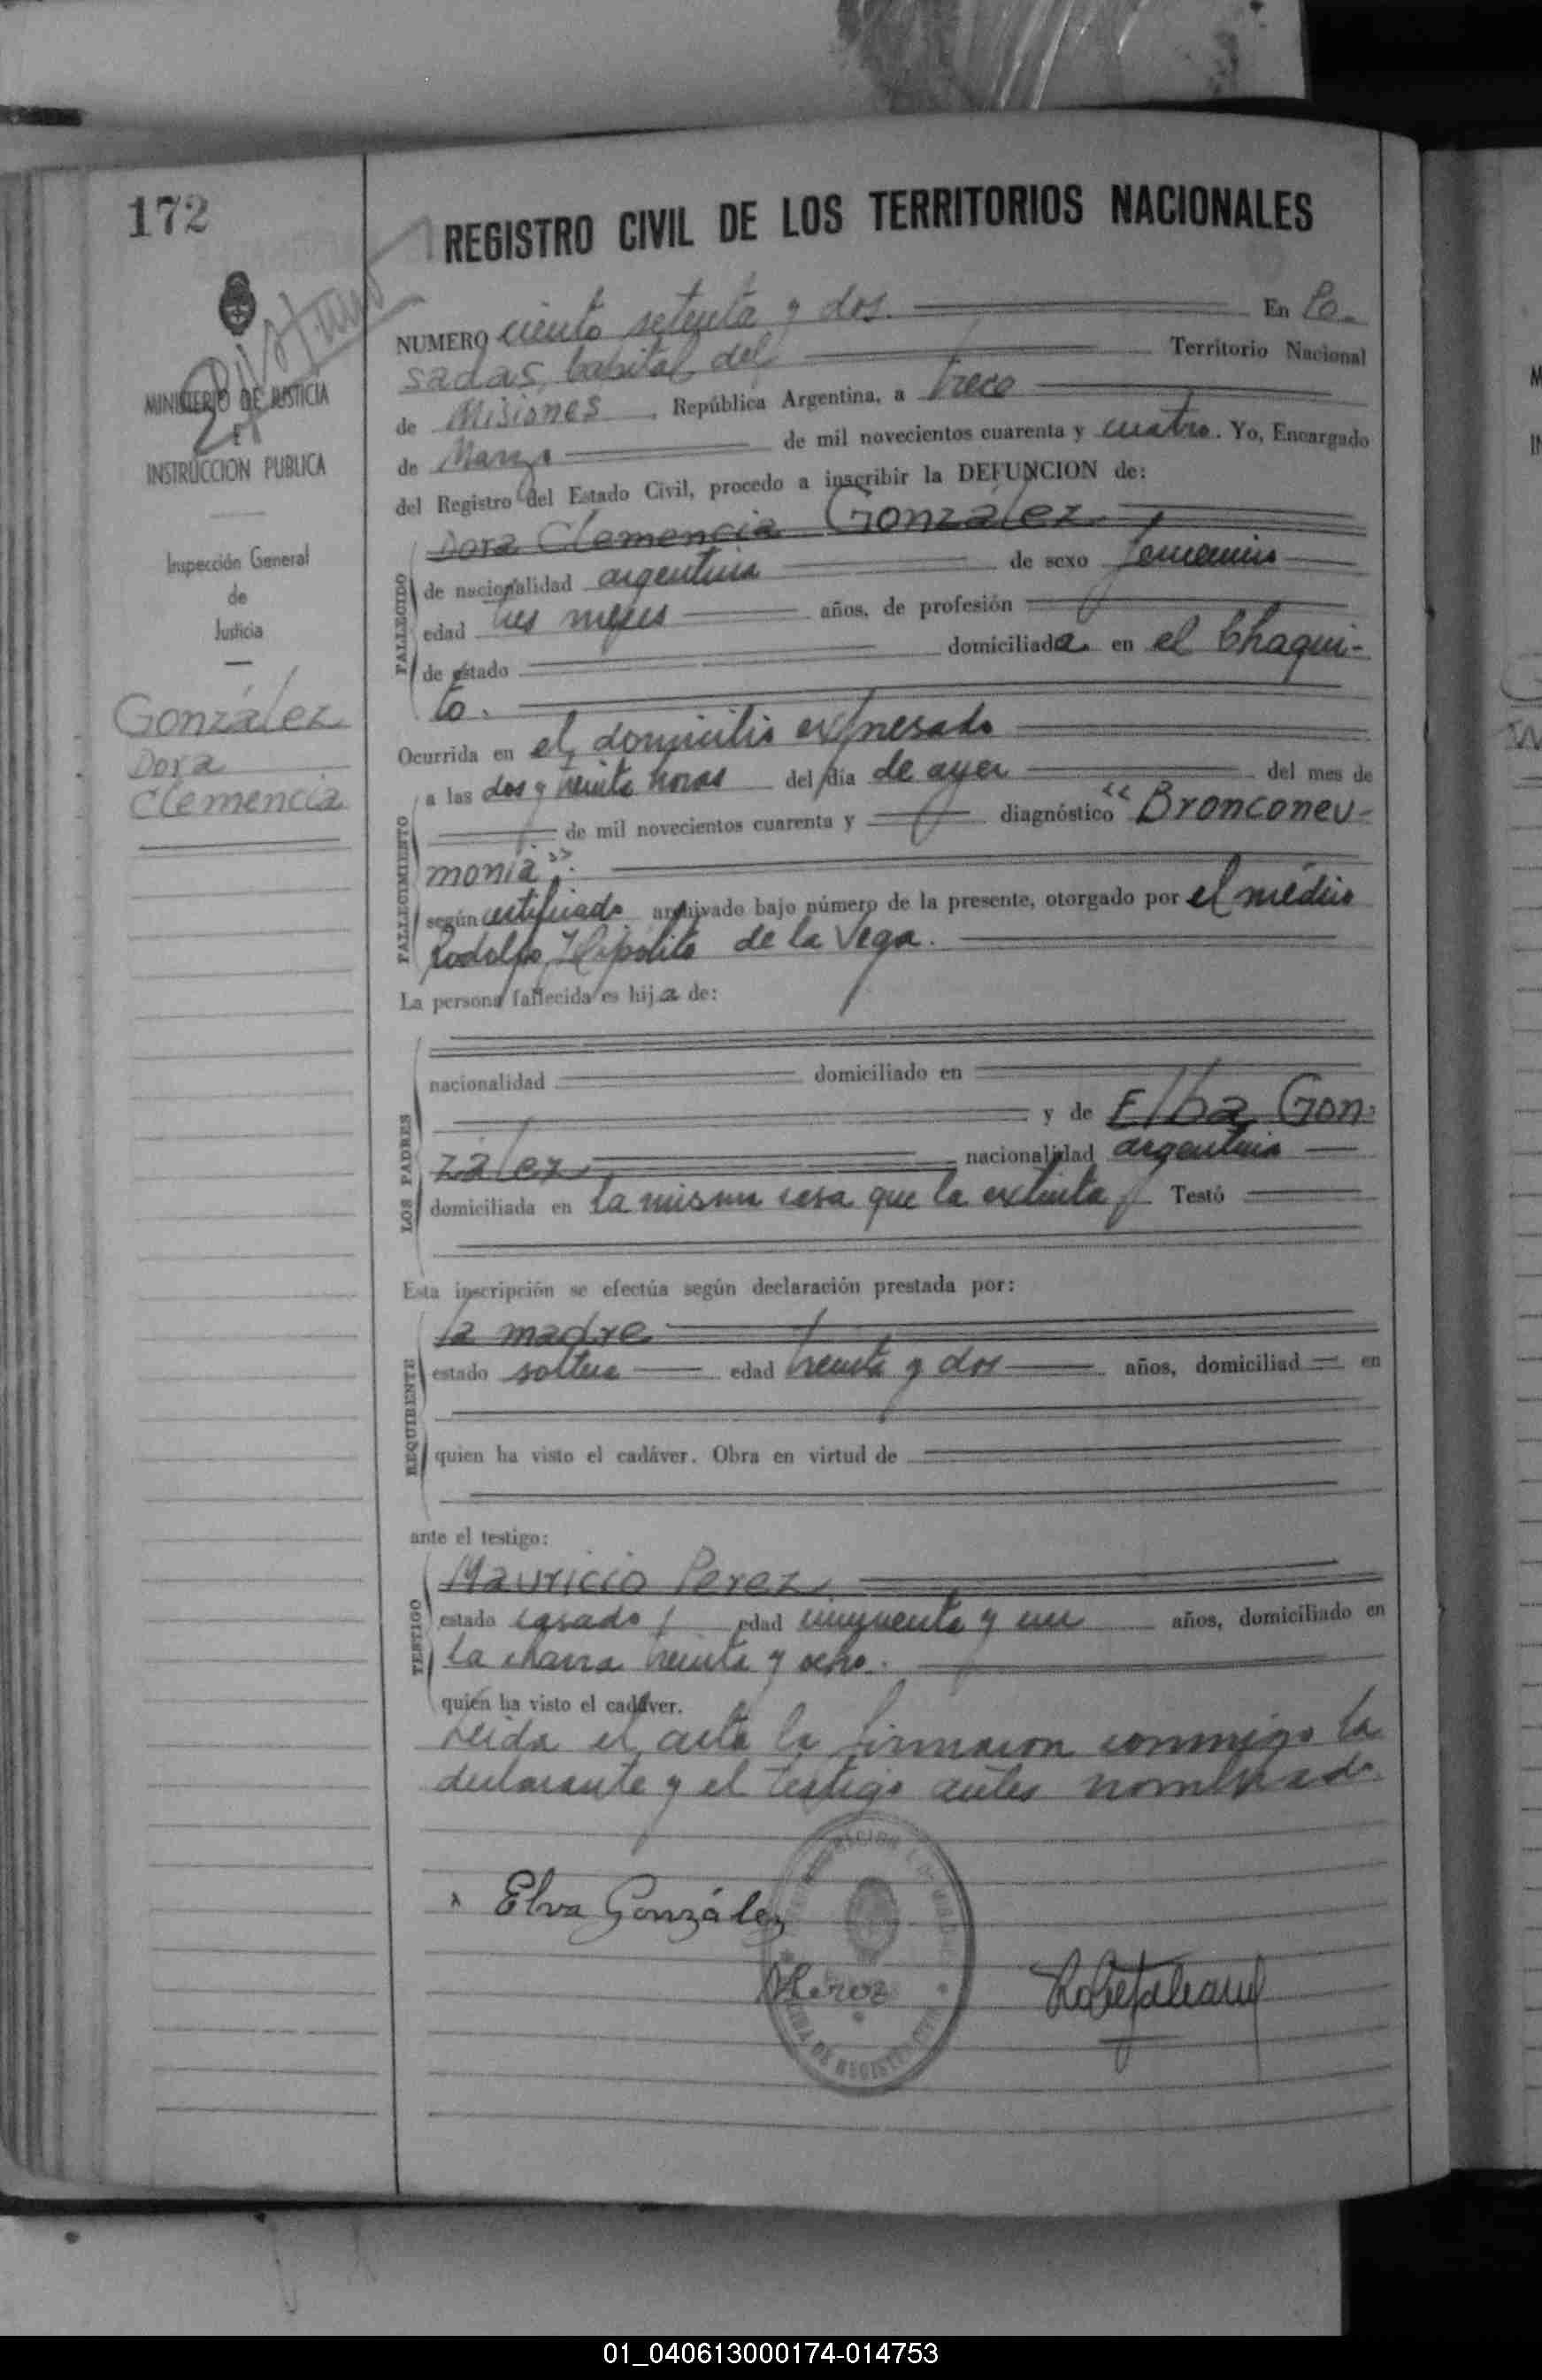 172
REGISTRO CIVIL DE LOS TERRITORIOS NACIONALES
MINISTERIO DE JUSTICIA
INSTRUCCION PUBLICA
Inspección General
de
Justicia
González
Dora
Clemencia
NUMERO ciento setenta y dos. En Po-
sadas, Capital del Territorio Nacional
de Misiones República Argentina, a trece
de Marzo de mil novecientos cuarenta y cuatro. Yo, Encargado
del Registro del Estado Civil, procedo a inscribir la DEFUNCION de:
Dora Clemencia González
FALLECIDO
de nacionalidad argentina de sexo femenino
edad tres meses años, de profesión
de estado domiciliada en el Chaqui-
to.
Ocurrida en el domicilio expresado
FALLECIMIENTO
a las dos y treinta horas del día de ayer del mes de
de mil novecientos cuarenta y diagnóstico "Bronconeu-
monia".
según certificado archivado bajo número de la presente, otorgado por el médico
Rodolfo Hipólito de la Vega.
La persona fallecida es hija de:
LOS PADRES
nacionalidad domiciliado en
y de Elba Gon-
zález nacionalidad argentina
domiciliada en la misma casa que la extinta Testó
Esta inscripción se efectúa según declaración prestada por:
REQUIRENTE
la madre
estado soltera edad treinta y dos años, domiciliad en
quien ha visto el cadáver. Obra en virtud de
ante el testigo:
TESTIGO
Mauricio Perez
estado casado edad cincuenta y un años, domiciliado en
la chacra treinta y ocho.
quién ha visto el cadáver.
Leida el acta la firmaron conmigo la
declarante y el testigo antes nombrado
Elva González
MPerez
01_040613000174-014753